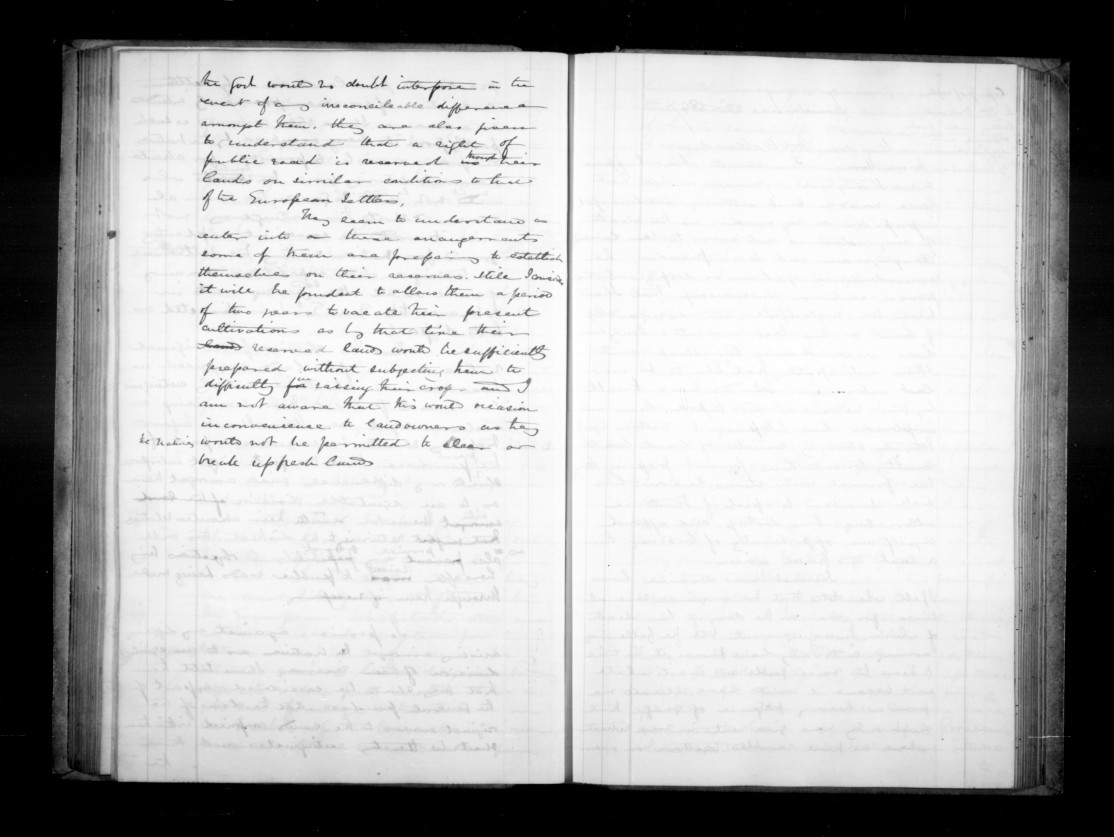 the Govt would no doubt interpose in the
event of any irreconcileable differences
amongst them. they are also given
to understand that a right of
public road is reserved through their
lands on similar conditions to those
of the European Settlers.
They seem to understand &
enter into these arrangements
some of them are preparing to establish
themselves on their reserves. still I consider
it will be prudent to allow them a period
of two years to vacate their present
cultivations as by that time their
reserved lands would be sufficiently
prepared without subjecting them to
difficulty in raising their crops. and I
am not aware that this would occasion
inconvenience to landowners as they
the natives would not be permitted to clear or
break up fresh lands